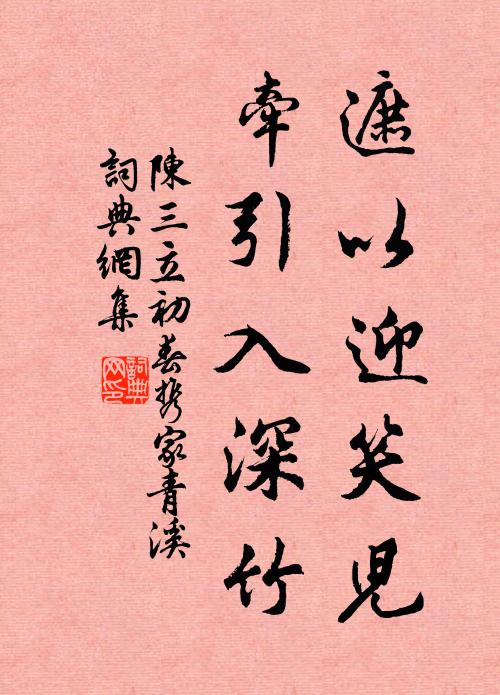 遮以迎笑兒
牽引入深竹
陳三立初春携家青溪
詞典網集
詞典
网印